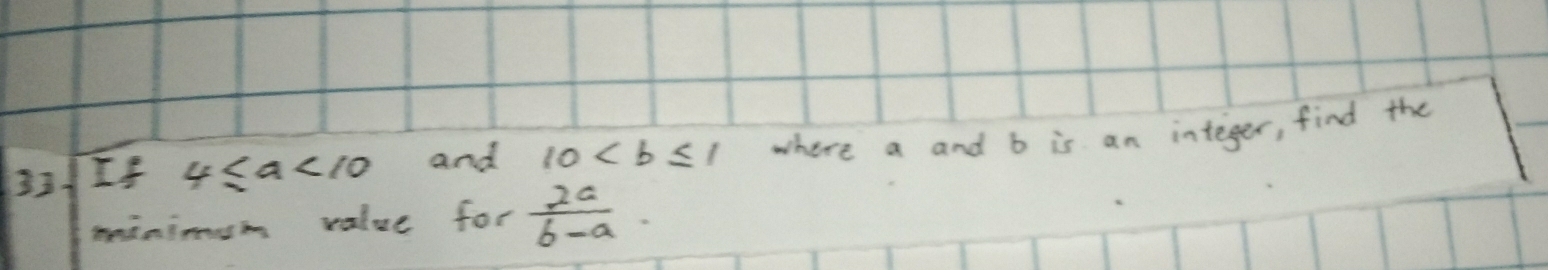 33. If 4 ≤ a < 10 and 10 < b ≤ 1 where a and b is an integer, find the
minimum value for 2a/b-a.